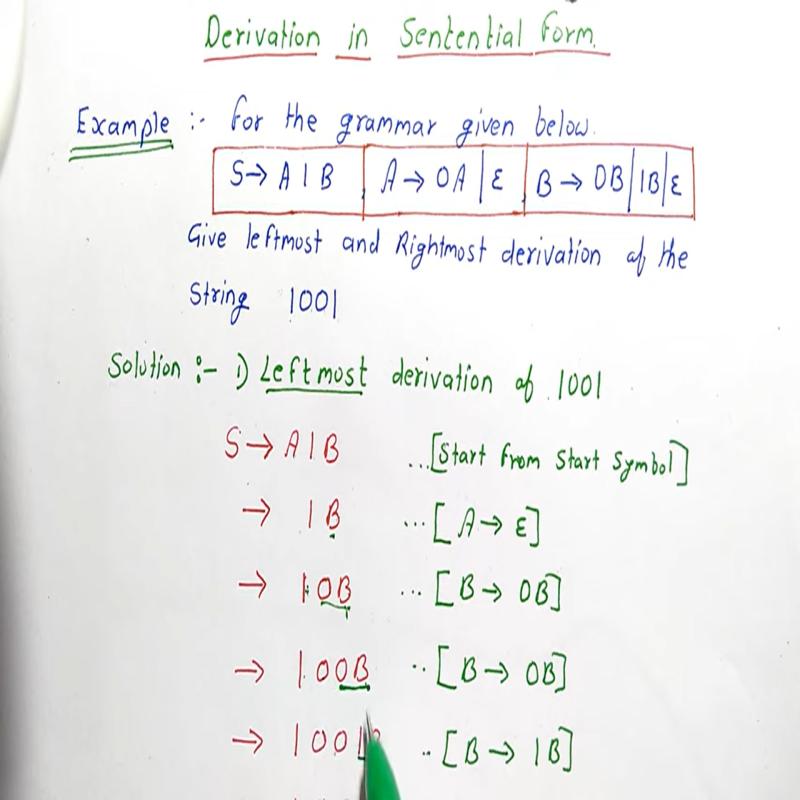 Derivation in Sentential Form.
Example :- For the grammar given below.
S→ A1B , A→ 0A|ε , B→ 0B|1B|ε
Give leftmost and Rightmost derivation of the
String 1001
Solution :- 1) Leftmost derivation of 1001
S→ A1B ...[Start from Start Symbol]
→ 1B ...[A→ ε]
→ 10B ...[B→ 0B]
→ 100B ..[B→ 0B]
→ 1001 ..[B→ 1B]